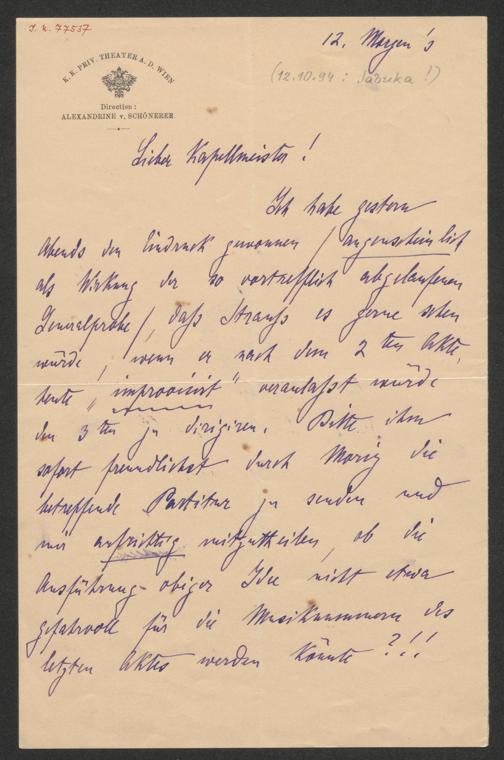 J. N. 77537
12. Morgen's
(12.10.94: Jabuka!)
K. K. PRIV. THEATER A. D. WIEN
Direction:
ALEXANDRINE v. SCHÖNERER.
Lieber Kapellmeister!
Ich habe gestern
Abends den Eindruck gewonnen / augenscheinlich
als Wirkung der so vortrefflich abgelaufenen
Generalprobe /, daß Strauß es gerne sehen
würde, wenn er nach dem 2ten Akte,
heute „improvisirt" veranlaßt würde
den 3ten zu dirigiren. Bitte ihm
sofort freundlichst durch Moriz die
betreffende Partitur zu senden und
mir aufrichtig mitzutheilen, ob die
Ausführung obiger Idee nicht etwa
gefahrvoll für die Musiknummern des
letzten Aktes werden könnte?!!